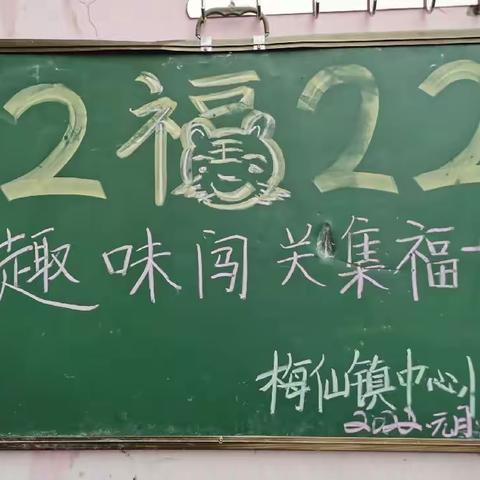 2福22
趣味闯关集福
梅仙镇中心小
2022.元月